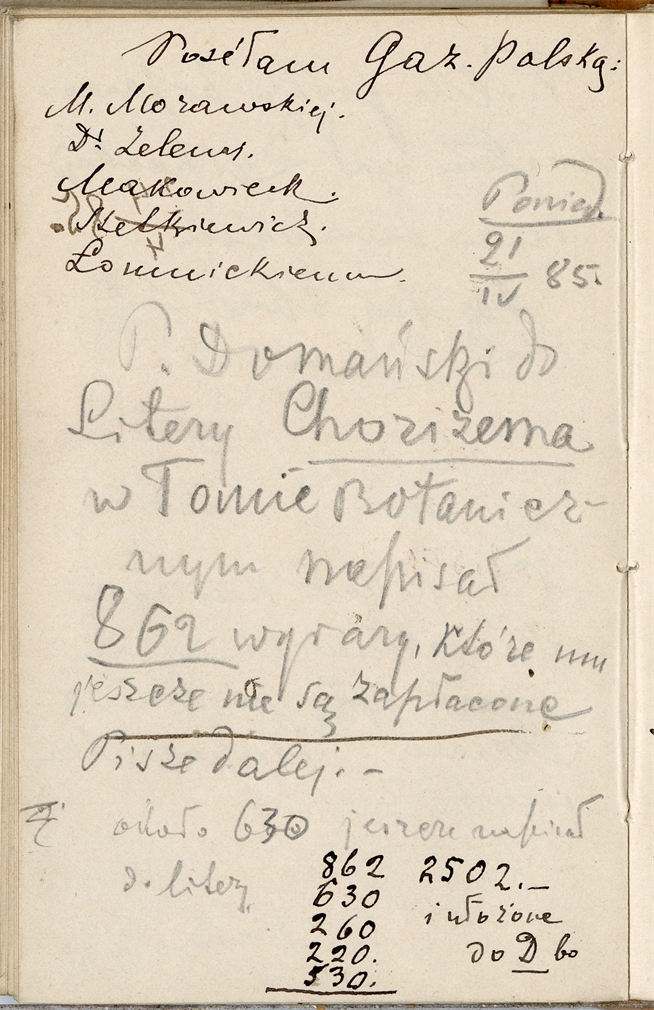 Posełam Gaz. Polską:
M. Morawskiej.
Dr. Zelens.
Makowieck.
Stetkiewicz.
Łomnickiemu.
Ponied.
21
IV 85.
P. Domański do
Litery Chorizema
w Tomie Botanicz-
nym napisał
862 wyrazy, które mu
jeszcze nie są zapłacone
Pisze dalej. -
około 630 jeszcze napisał
do litery
862 2502.-
630 i ułożone
260
220. do D bo
530.